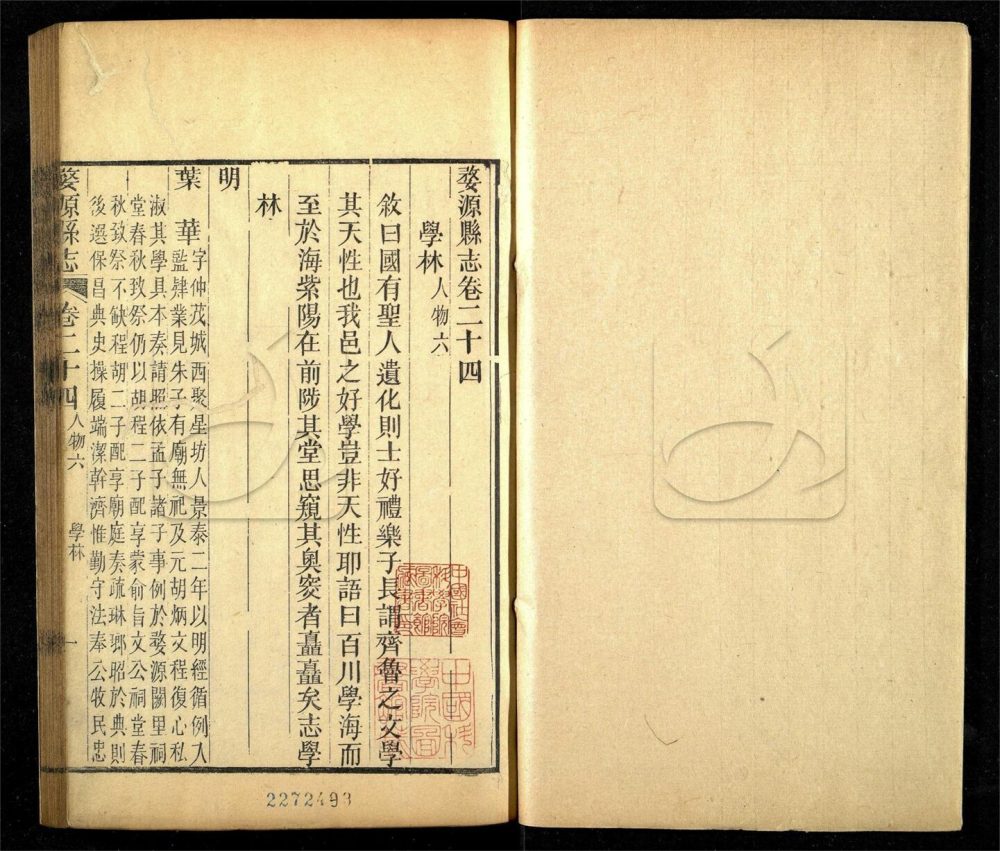 婺源縣志卷二十四
學林人物六
敘曰國有聖人遺化則士好禮樂子長謂齊魯之文學
其天性也我邑之好學豈非天性耶語曰百川學海而
至於海紫陽在前陟其堂思窺其奧窔者矗矗矣志學
林
明
葉華字仲茂城西聚星坊人景泰二年以明經循例入
監肄業見朱子有廟無祀及元胡炳文程復心私
淑其學具本奏請照依孟子諸子事例於婺源闕里祠
堂春秋致祭仍以胡程二子配享蒙俞旨文公祠堂春
秋致祭不缺程胡二子配享廟庭奏疏琳鄉昭於典則
後選保昌典史操履端潔幹濟惟勤守法奉公牧民忠
婺源縣志 卷二十四 人物六 學林 一
中國社會
科學院
圖書館
中國科
學院圖
2272493